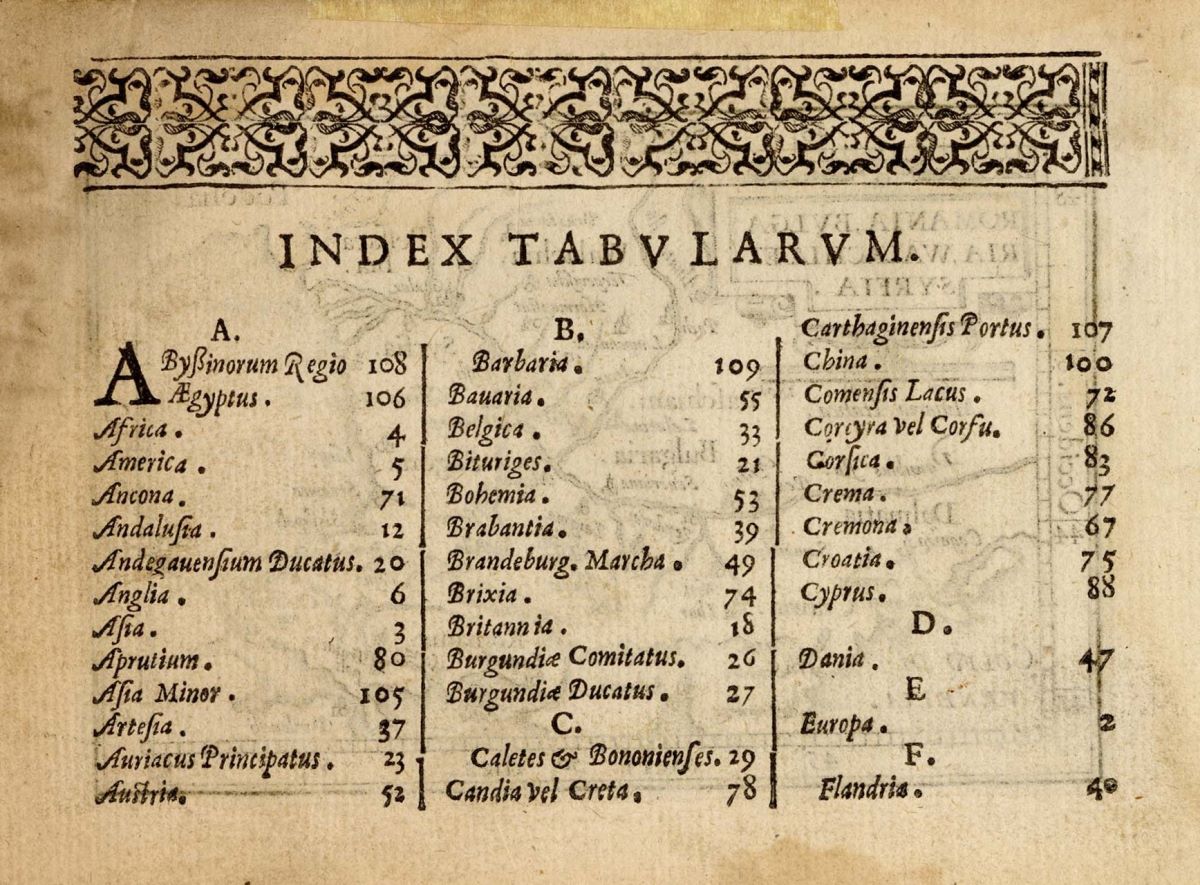 INDEX TABVLARVM.
A.
AByßinorum Regio 108
Ægyptus. 106
Africa. 4
America. 5
Ancona. 71
Andalusia. 12
Andegauensium Ducatus. 20
Anglia. 6
Asia. 3
Aprutium. 80
Asia Minor. 105
Artesia. 37
Auriacus Principatus. 23
Austria. 52
B.
Barbaria. 109
Bauaria. 55
Belgica. 33
Bituriges. 21
Bohemia. 53
Brabantia. 39
Brandeburg. Marcha. 49
Brixia. 74
Britannia. 18
Burgundiæ Comitatus. 26
Burgundiæ Ducatus. 27
C.
Caletes & Bononienses. 29
Candia vel Creta. 78
Carthaginensis Portus. 107
China. 100
Comensis Lacus. 72
Corcyra vel Corfu. 86
Corsica. 83
Crema. 77
Cremona. 67
Croatia. 75
Cyprus. 88
D.
Dania. 47
E
Europa. 2
F.
Flandria. 40